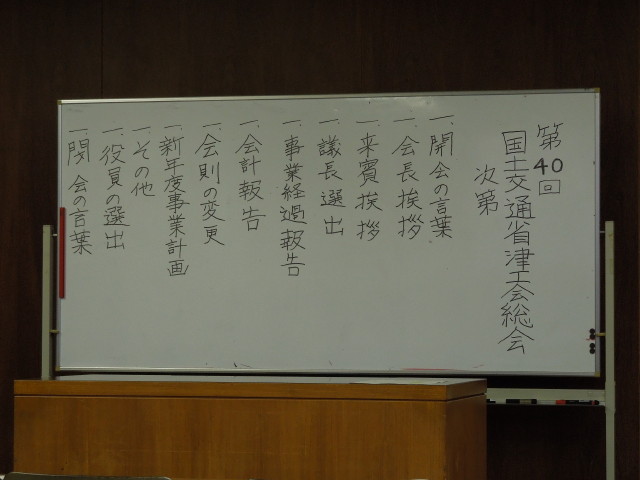 第40回
国土交通省津工会総会
次第
一.開会の言葉
一.会長挨拶
一.来賓挨拶
一.議長選出
一.事業経過報告
一.会計報告
一.会則の変更
一.新年度事業計画
一.その他
一.役員の選出
一.閉会の言葉